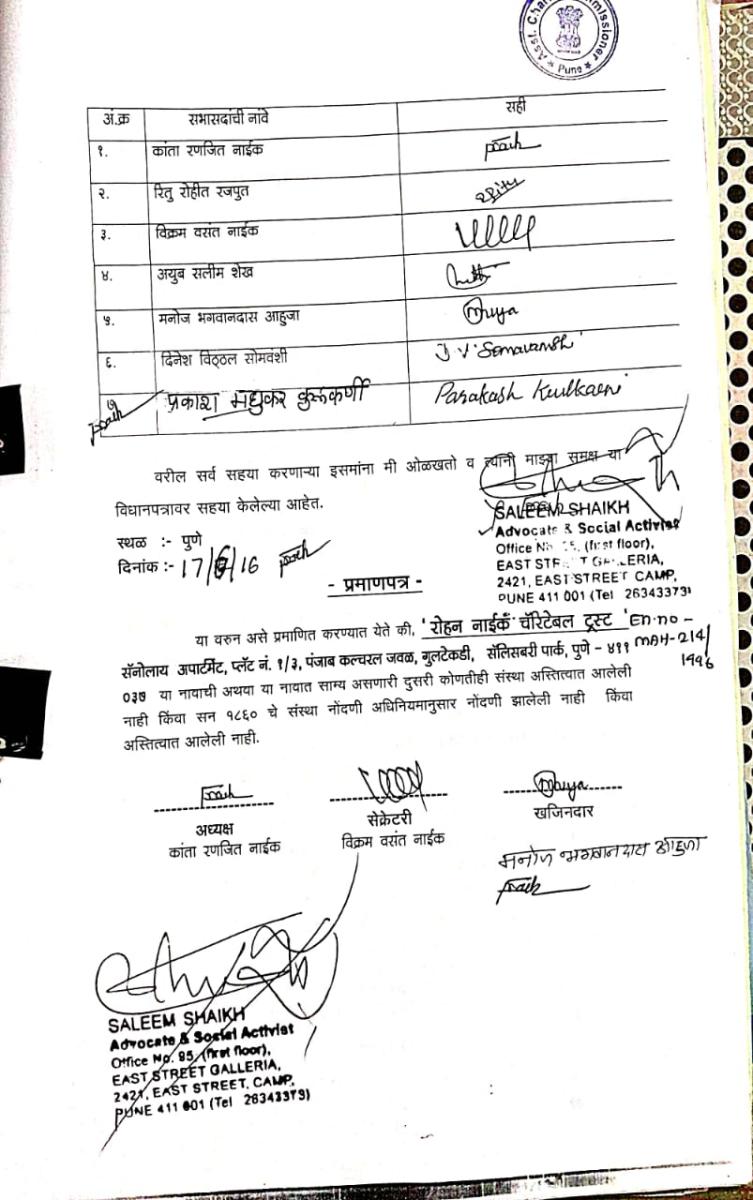 Asst. Charity Commissioner
★ Pune ★
अं.क्र सभासदांची नांवे सही
१. कांता रणजित नाईक
२. रितु रोहीत रजपुत
३. विक्रम वसंत नाईक
४. अयुब सलीम शेख
५. मनोज भगवानदास आहुजा
६. दिनेश विठ्ठल सोमवंशी D V Somavanshi
७ प्रकाश मधुकर कुलकर्णी Parakash Kulkarni
वरील सर्व सहया करणाऱ्या इसमांना मी ओळखतो व त्यांनी माझ्या समक्ष या
विधानपत्रावर सहया केलेल्या आहेत.
SALEEM SHAIKH
Advocate & Social Activist
Office No. 95, (first floor),
EAST STREET GALLERIA,
2421, EAST STREET CAMP,
PUNE 411 001 (Tel 26343373)
स्थळ :- पुणे
दिनांक :- 17/6/16
- प्रमाणपत्र -
या वरुन असे प्रमाणित करण्यात येते की, 'रोहन नाईक चॅरिटेबल ट्रस्ट' En.no -
सॅनोलाय अपार्टमेंट, प्लॅट नं. १/३, पंजाब कल्चरल जवळ, गुलटेकडी, सॅलिसबरी पार्क, पुणे - ४११ MAH-214/
1996
०३७ या नावाची अथवा या नावात साम्य असणारी दुसरी कोणतीही संस्था अस्तित्वात आलेली
नाही किंवा सन १८६० चे संस्था नोंदणी अधिनियमानुसार नोंदणी झालेली नाही किंवा
अस्तित्वात आलेली नाही.
अध्यक्ष सेक्रेटरी खजिनदार
कांता रणजित नाईक विक्रम वसंत नाईक
मनोज भगवानदास आहुजा
SALEEM SHAIKH
Advocate & Social Activist
Office No. 95, (first floor),
EAST STREET GALLERIA,
2421, EAST STREET, CAMP,
PUNE 411 001 (Tel 26343373)